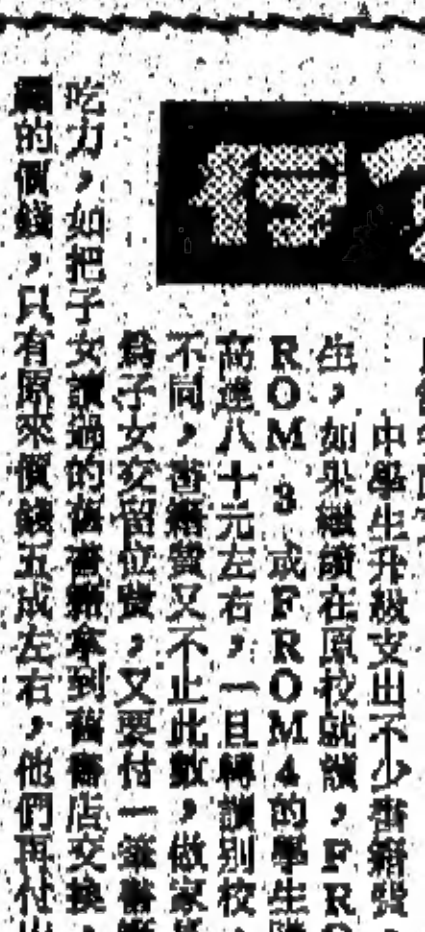 行
中學生升級支出不少書籍費，
生，如果繼續在原校就讀，FR
ROM 3 或FROM 4 的學生
高達八十元左右，一旦轉讀別校，
不同，書籍費又不止此數，做家
為子女交留位費，又要付一筆書
吃力，如把子女讀過的舊書籍拿到舊書店交換，
的價錢，只有原來價錢五成左右，他們再付出